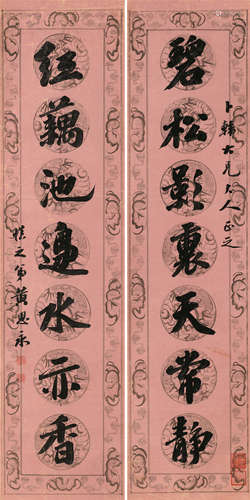 卜韩大兄大人正之
碧松影裏天常靜
红藕池邊水亦香
慎之弟黄思永